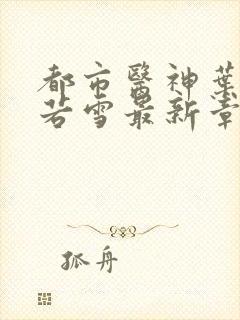 都市醫神葉
若雪最新章
孤舟